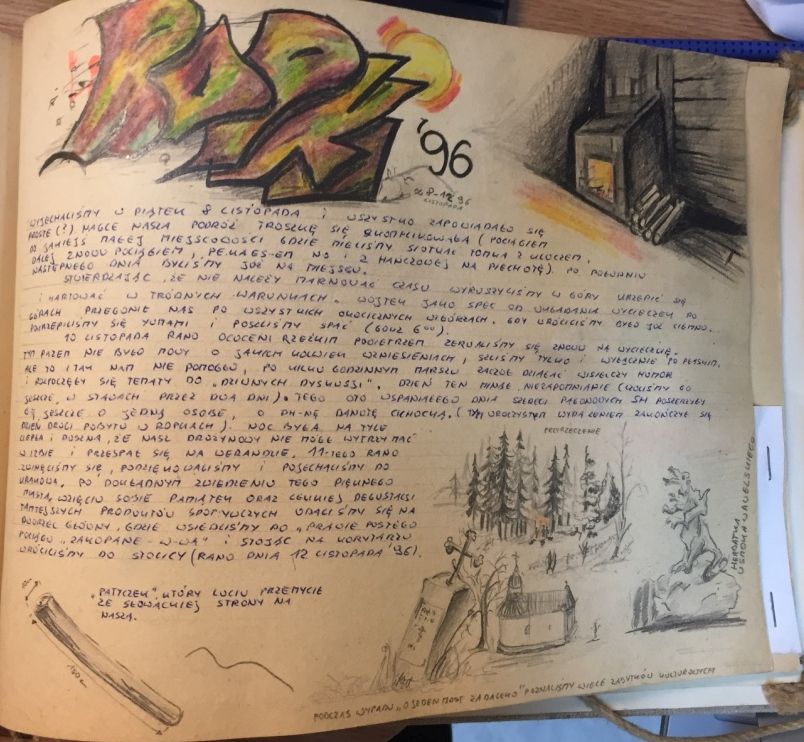 ROPKI
'96
od 8-12
LISTOPADA
'96
WYJECHALIŚMY W PIĄTEK 8 LISTOPADA I WSZYSTKO ZAPOWIADAŁO SIĘ
PROSTE (?) NAGLE NASZA PODRÓŻ TROSZKĘ SIĘ SKOMPLIKOWAŁA (POCIĄGIEM
DO JAKIEJŚ MAŁEJ MIEJSCOWOŚCI GDZIE MIELIŚMY SPOTKAĆ TOMKA Z KLUCZEM,
DALEJ ZNOWU POCIĄGIEM, PE.KA.ES-EM NO I Z HAŃCZOWEJ NA PIECHOTĘ). PO POŁUDNIU
NASTĘPNEGO DNIA BYLIŚMY JUŻ NA MIEJSCU.
STWIERDZAJĄC, ŻE NIE NALEŻY MARNOWAĆ CZASU WYRUSZYLIŚMY W GÓRY
I HARTOWAĆ W TRUDNYCH WARUNKACH. WOJTEK JAKO SPEC OD UKŁADANIA WYCIECZEK PO
GÓRACH PRZEGONIŁ NAS PO WSZYSTKICH OKOLICZNYCH WZGÓRZACH. GDY WRÓCILIŚMY BYŁO JUŻ CIEMNO.
POKRZEPILIŚMY SIĘ YUMAMI I POSZLIŚMY SPAĆ (GODZ 6⁰⁰).
10 LISTOPADA RANO OCUCENI RZEŚKIM POWIETRZEM ZERWALIŚMY SIĘ ZNOWU NA WYCIECZKĘ.
TYM RAZEM NIE BYŁO MOWY O JAKICHKOLWIEK WZNIESIENIACH, SZLIŚMY TYLKO I WYŁĄCZNIE PO PŁASKIM.
ALE TO I TAK NAM NIE POMOGŁO, PO KILKU GODZINNYM MARSZU ZACZĄŁ DZIAŁAĆ WISIELCZY HUMOR
I ROZPOCZĘŁY SIĘ TEMATY DO „DZIWNYCH DYSKUSJI". DZIEŃ TEN MINĄŁ NIEZAPOMNIANIE (CZULIŚMY GO
JESZCZE W STAWACH PRZEZ DWA DNI). TEGO OTO WSPANIAŁEGO DNIA SZEREGI PAŁĄKOWYCH SH POSZERZYŁY
SIĘ JESZCZE O JEDNĄ OSOBĘ, O DH-NĘ DANUTĘ CICHOCKĄ. (TYM UROCZYSTYM WYDARZENIEM ZAKOŃCZYŁ SIĘ
DZIEŃ DRUGI POBYTU W ROPKACH). NOC BYŁA NA TYLE
CIEPŁA I DUSZNA, ŻE NASZ DRUŻYNOWY NIE MÓGŁ WYTRZYMAĆ
W IZBIE I PRZESPAŁ SIĘ NA WERANDZIE. 11-TEGO RANO
ZWINĘLIŚMY SIĘ, PODZIĘKOWALIŚMY I POJECHALIŚMY DO
KRAKOWA. PO DOKŁADNYM ZWIEDZENIU TEGO PIĘKNEGO
MIASTA, WZIĘCIU SOBIE PAMIĄTEK ORAZ LEKKIEJ DEGUSTACJI
TAMTEJSZYCH PRODUKTÓW SPOŻYWCZYCH UDALIŚMY SIĘ NA
DWORZEC GŁÓWNY, GDZIE WSIEDLIŚMY DO „PRAWIE PUSTEGO
POCIĄGU „ZAKOPANE - W-WA" I STOJĄC NA KORYTARZU
WRÓCILIŚMY DO STOLICY (RANO DNIA 12 LISTOPADA '96).
PRZYRZECZENIE
HERBATKA
U SMOKA WAWELSKIEGO
„PATYCZEK" KTÓRY LUCIU PRZEMYCIŁ
ZE SŁOWACKIEJ STRONY NA
NASZĄ.
PODCZAS WYPADU „O JEDEN MOST ZA DALEKO" POZNALIŚMY WIELE ZABYTKÓW KULTUROWYCH